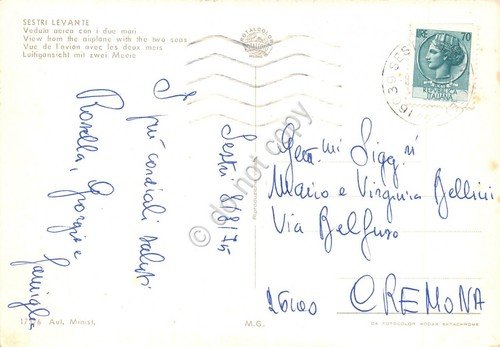 SESTRI LEVANTE
Veduta aerea con i due mari
View from the airplane with the two seas
Vue de l'avion avec les deux mers
Luftgansicht mit zwei Meere
LIRE 70
REPUBBLICA
ITALIANA
Sestri 8/8/75
I più cordiali saluti
Rosella, Giorgio e
famiglia
Gen.mi Sigg.ri
Mario e Virginia Bellini
Via Belfuso
26100 CREMONA
do not copy
Aut. Minist.
M.G.
DA FOTOCOLOR KODAK EKTACHROME